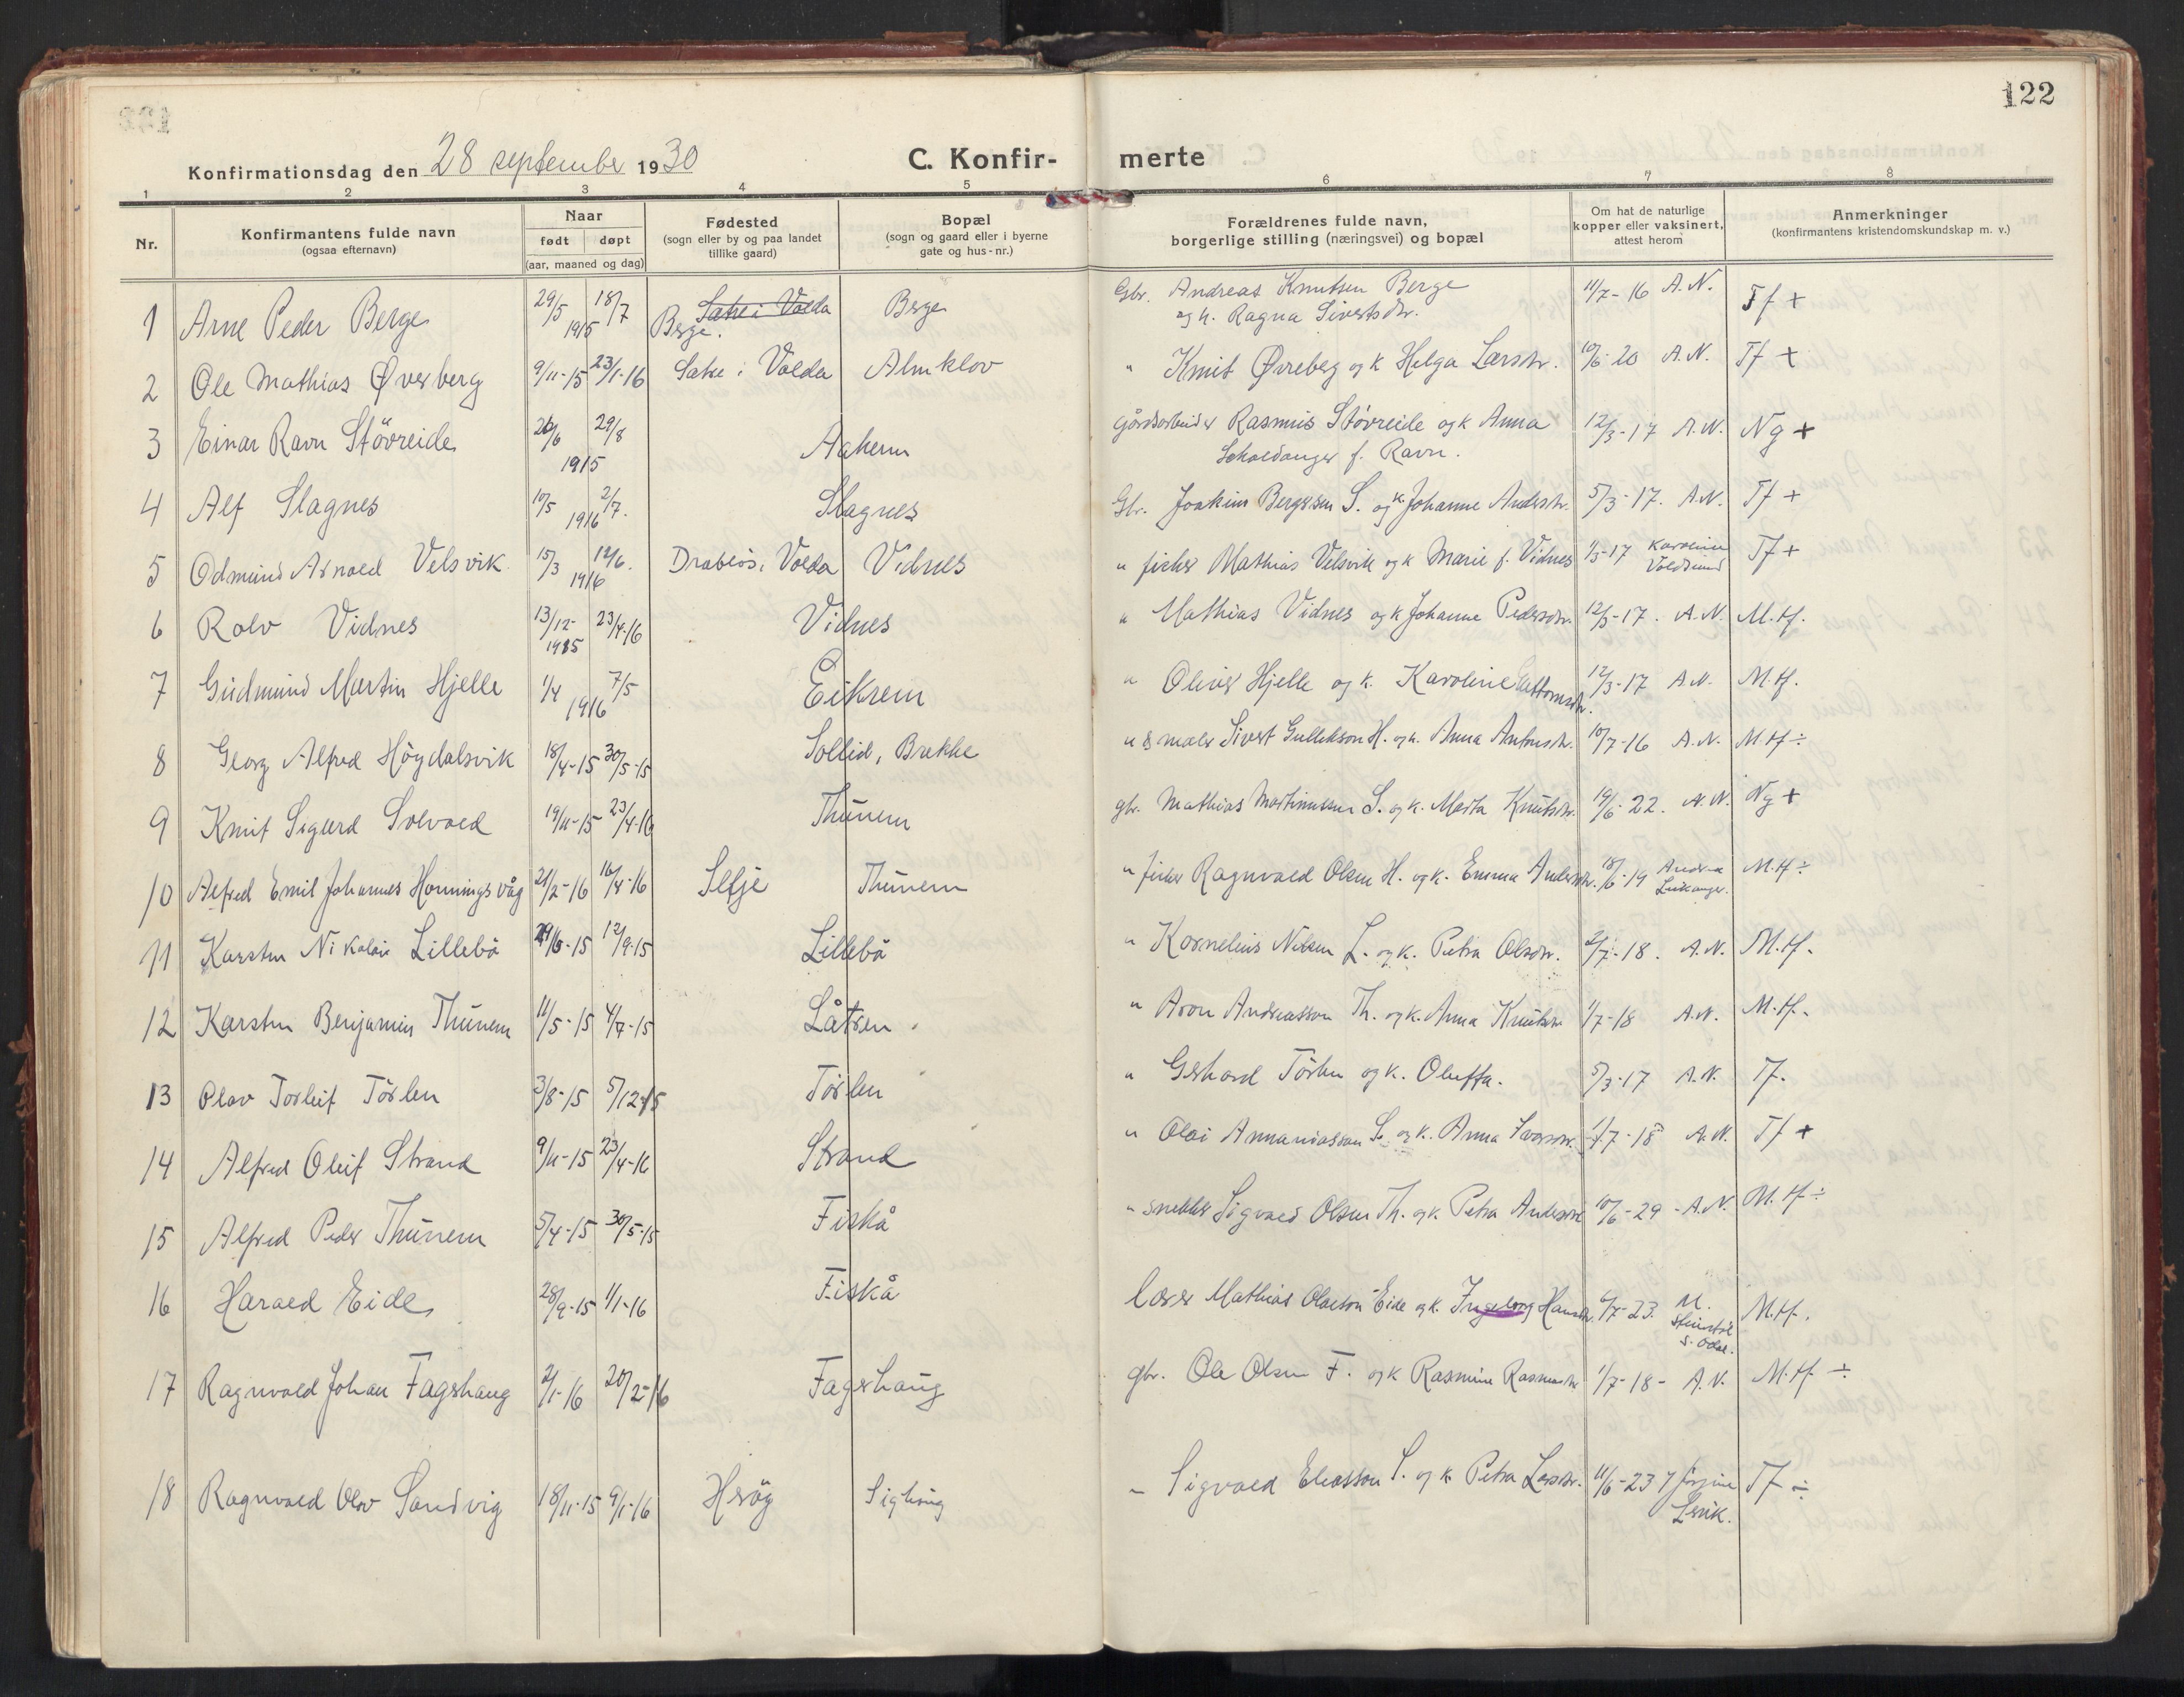 122
Konfirmationsdag den 28 september 1930
C. Konfir- merte
1 2 3 4 5 6 7 8
Nr.
Konfirmantens fulde navn
(ogsaa efternavn)
Naar
født døpt
(aar, maaned og dag)
Fødested
(sogn eller by og paa landet
tillike gaard)
Bopæl
(sogn og gaard eller i byerne
gate og hus-nr.)
Forældrenes fulde navn,
borgerlige stilling (næringsvei) og bopæl
Om hat de naturlige
kopper eller vaksinert,
attest herom
Anmerkninger
(konfirmantens kristendomskundskap m. v.)
1 Arne Peder Berge 29/5 18/7 1915 Satre i Volda Berge. Berge Gbr. Andreas Knutsen Berge 11/7-16 A.N. Tf +
og h. Ragna Sivertsdtr.
2 Ole Mathias Øverberg 9/11-15 23/1-16 Satre i Volda Almklov " Knut Øvreberg og k Helga Larsdtr. 10/6-20 A.N. Tf +
3 Einar Ravn Störreide 26/6 29/8 1915 Aaheim gårdsarbeider Rasmus Störreide og k Anna 12/3-17 A.N. Ng +
f. Ravn.
4 Alf Slagnes 10/5 2/7. 1916 Slagnes Gbr. Joakim Bergesen S. og k. Johanne Andersdtr. 5/3-17. A.N. Tf +
5 Odmund Arnold Velsvik 15/3 12/6. 1916 Drablös i Volda Vidnes " fisker Mathias Velsvik og k Marie f. Vidnes 1/3-17 Karoline Voldsund Tf +
6 Rolv Vidnes 13/12- 1915 23/4-16 Vidnes " Mathias Vidnes og k Johanne Pedersdtr. 12/3-17. A.N. M.tf.
7 Gudmund Martin Hjelle 1/4 7/5 1916 Eikrem " Oliver Hjelle og k. Karoline 12/3-17 A.N. M.tf.
8 Georg Alfred Högdalsvik 18/4-15 30/5-15 Sollid, Brekke " & maler Sivert Gullikson H. og k. Anna Antonsdtr. 10/7-16 A.N. M.tf ÷
9 Knut Sigurd Solvold 19/11-15 23/4-16 Thunem gbr. Mathias Martinussen S. og k. Marta Knutsdtr. 19/6-22. A.N. Ng +
10 Alfred Emil Johannes Honningsvåg 21/2-16 16/4-16 Selje Thunem " fisker Ragnvald Olsen H. og k. Emma Andersdtr. 18/6-19 Andrea Leikanger. M.tf ÷
11 Karsten Nikolai Lillebö 29/6-15 12/9-15 Lillebö " Kornelius Nilsen L. og k. Petra Olsdtr. 2/7-18. A.N. M.tf.
12 Karsten Benjamin Thunem 11/5-15 4/7-15 Låtsen. " Aron Andreasson Th. og k. Anna Knutsdtr 1/7-18 A.N. M.tf.
13 Olav Torleif Törlen 3/8-15 5/12-15 Törlen " Gerhard Törlen og k. Oluffa. 5/3-17 A.N. Tf.
14 Alfred Oleif Strand 9/11-15 23/4-16 Strand " Olai Annaniasson S. og k. Anna Ivarsdtr. 1/7-18 A.N. Tf +
15 Alfred Peder Thunem 5/4-15 30/5-15 Fiskå " snekker Sigvald Olsen Th. og k. Petra Andersdtr 10/6-29 - A.N. M.tf ÷
16 Harald Eide 28/9-15 1/1-16 Fiskå lærer Mathias Olaison Eide og k. Ingeborg Hansdtr. 6/7-23. M. S. Odal. M.tf.
17 Ragnvald Johan Fagerhaug 2/1-16 20/2-16 Fagerhaug gbr. Ole Olsen F. og k Rasmine Rasmusdtr 1/7-18 - A.N. M.tf ÷
18 Ragnvald Olav Sandvig 18/11-15 9/1-16 Heröy Sighaug " Sigvald Eliasson S. og k Petra Larsdtr. 11/6-23 Jörgine Lervik. Tf ÷